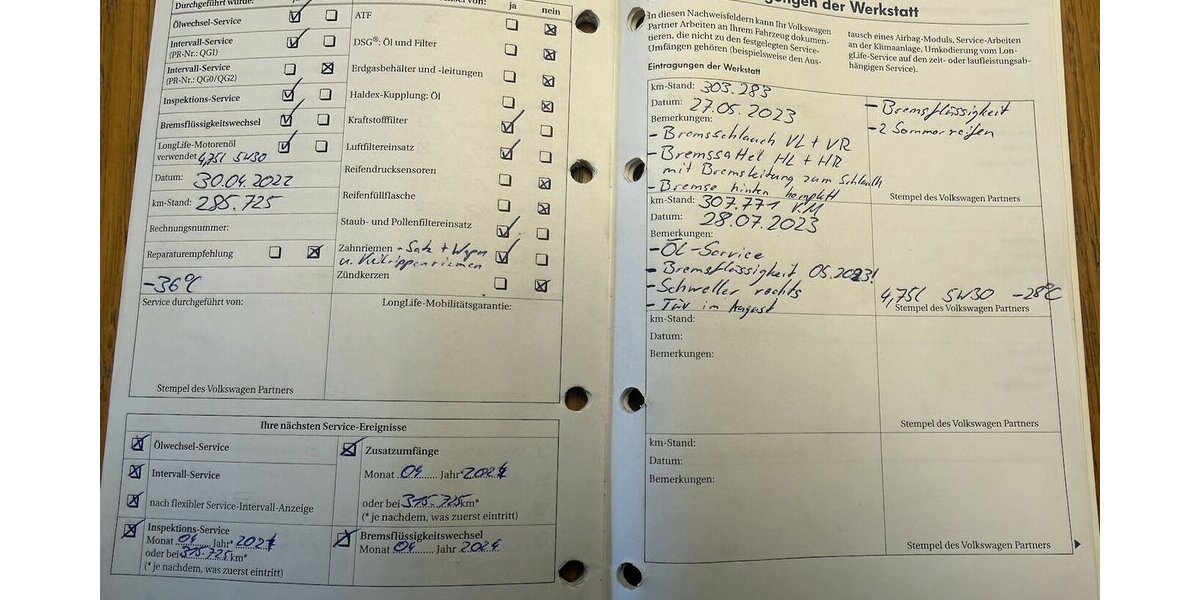 Durchgeführt wurde:
ja
nein
Ölwechsel-Service
Intervall-Service
(PR-Nr.: QG1)
Intervall-Service
(PR-Nr.: QG0/QG2)
Inspektions-Service
Bremsflüssigkeitswechsel
LongLife-Motorenöl
verwendet 4,75l 5W30
Datum: 30.04.2022
km-Stand: 285.725
Rechnungsnummer:
Reparaturempfehlung
-36°C
Service durchgeführt von:
Stempel des Volkswagen Partners
ATF
DSG®: Öl und Filter
Erdgasbehälter und -leitungen
Haldex-Kupplung: Öl
Kraftstofffilter
Luftfiltereinsatz
Reifendrucksensoren
Reifenfüllflasche
Staub- und Pollenfiltereinsatz
Zahnriemen - Satz + Wapu
u. Keilrippenriemen
Zündkerzen
LongLife-Mobilitätsgarantie:
Ihre nächsten Service-Ereignisse
Ölwechsel-Service
Intervall-Service
nach flexibler Service-Intervall-Anzeige
Inspektions-Service
Monat 04 Jahr* 2024
oder bei 315.725 km*
(* je nachdem, was zuerst eintritt)
Zusatzumfänge
Monat 04 Jahr 2024
oder bei 315.725 km*
(* je nachdem, was zuerst eintritt)
Bremsflüssigkeitswechsel
Monat 04 Jahr 2024
der Werkstatt
In diesen Nachweisfeldern kann Ihr Volkswagen
Partner Arbeiten an Ihrem Fahrzeug dokumen-
tieren, die nicht zu den festgelegten Service-
Umfängen gehören (beispielsweise den Aus-
tausch eines Airbag-Moduls, Service-Arbeiten
an der Klimaanlage, Umkodierung vom Lon-
gLife-Service auf den zeit- oder laufleistungsab-
hängigen Service).
Eintragungen der Werkstatt
km-Stand: 303.283
Datum: 27.05.2023
Bemerkungen:
- Bremsschlauch VL + VR
- Bremssattel HL + HR
mit Bremsleitung zum Schlauch
- Bremse hinten komplett
- Bremsflüssigkeit
- 2 Sommerreifen
Stempel des Volkswagen Partners
km-Stand: 307.771 KM
Datum: 28.07.2023
Bemerkungen:
- Öl-Service
- Bremsflüssigkeit 05.2023!
- Schweller rechts
- Tüv im August
4,75l 5W30 -28°C
Stempel des Volkswagen Partners
km-Stand:
Datum:
Bemerkungen:
Stempel des Volkswagen Partners
km-Stand:
Datum:
Bemerkungen:
Stempel des Volkswagen Partners